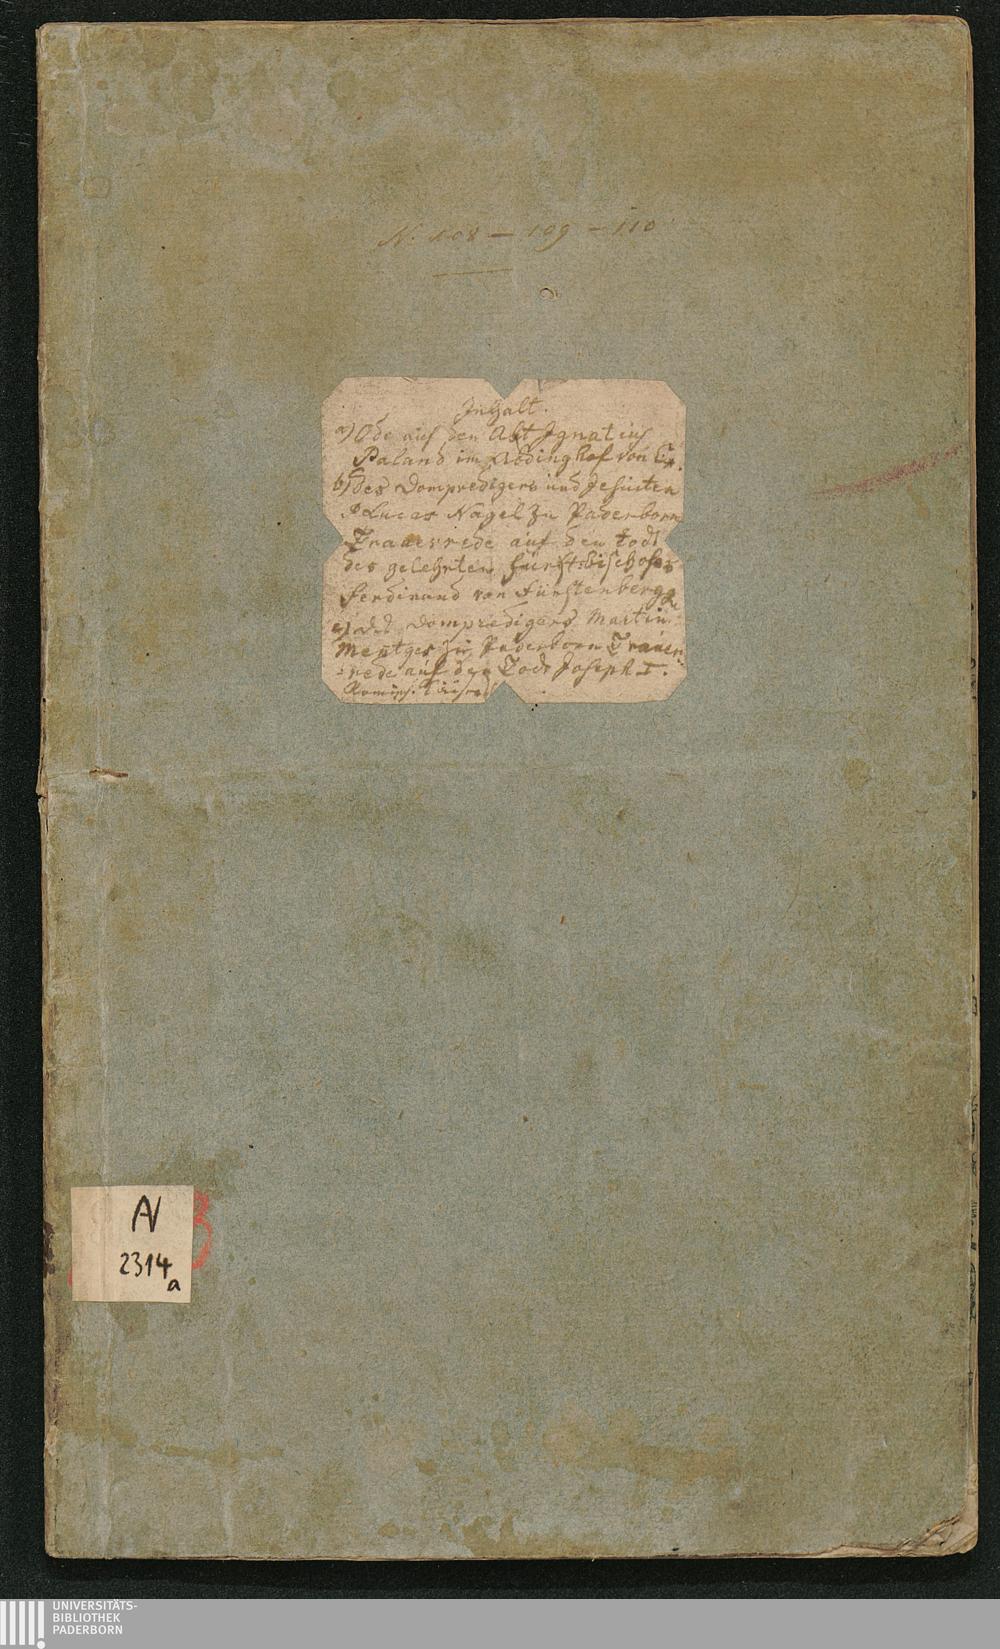 N. 108 — 109 — 110
Inhalt.
a) Ode auf den Abt Ignatius
Paland im Abdinghof von
b) des Dompredigers und Jesuiten
P Lucas Nagel zu Paderborn
Trauerrede auf den Tods
des gelehrten Fürstbischofes
Ferdinand von Fürstenberg
c) des Dompredigers Martin
Mentges zu Paderborn Trauer
=rede auf den Tods Joseph I.
AV
2314
a
UNIVERSITÄTS-
BIBLIOTHEK
PADERBORN